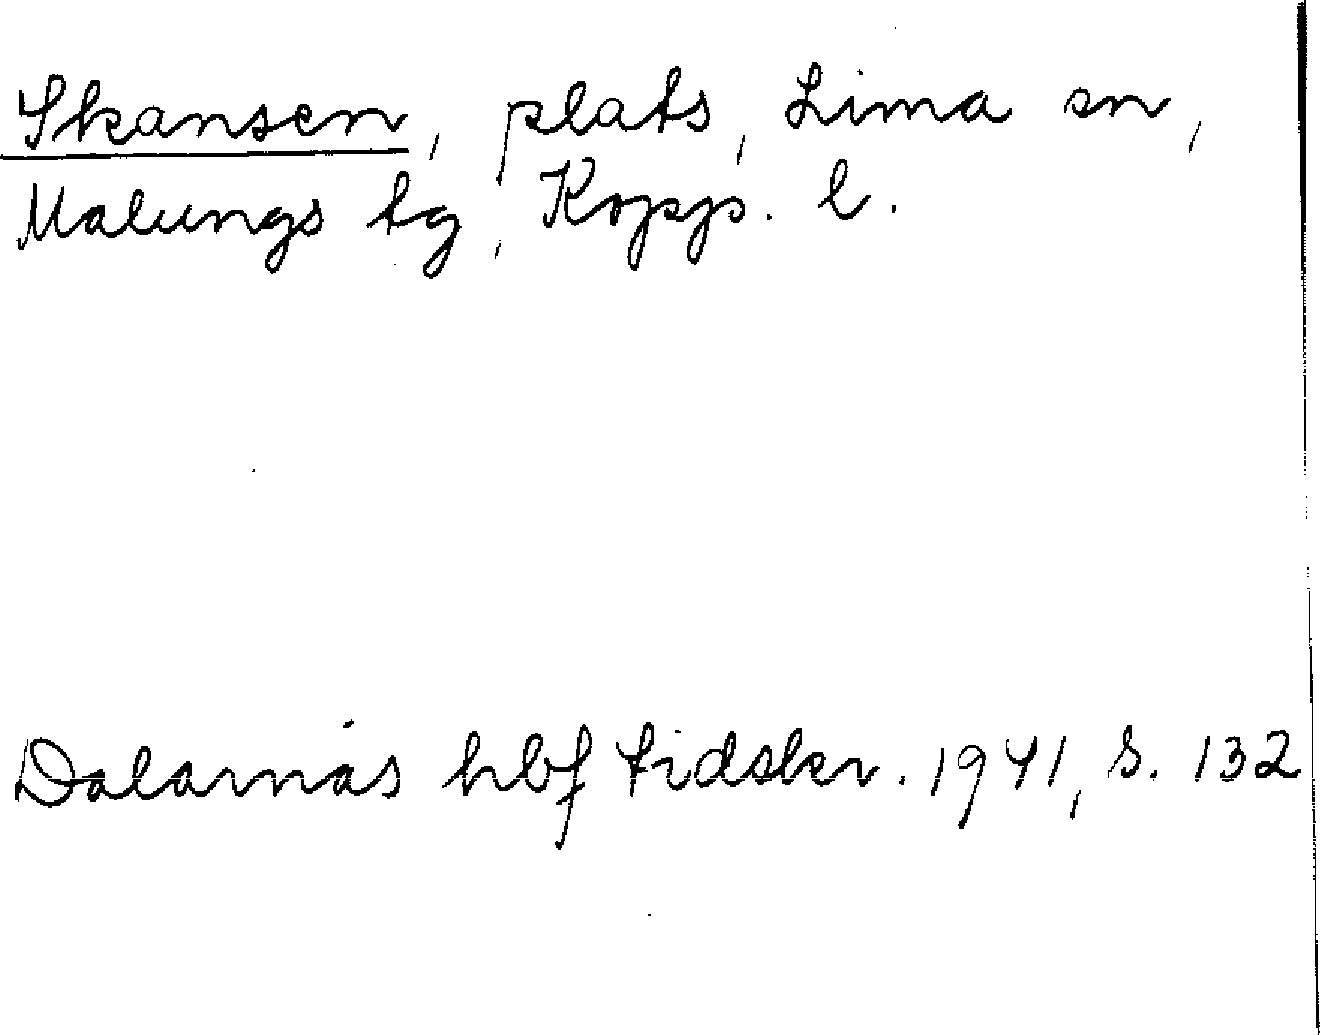 Skansen, plats, Lima sn,
Malungs tg, Kopp. l.
Dalarnas hbf tidskr. 1941, s. 132